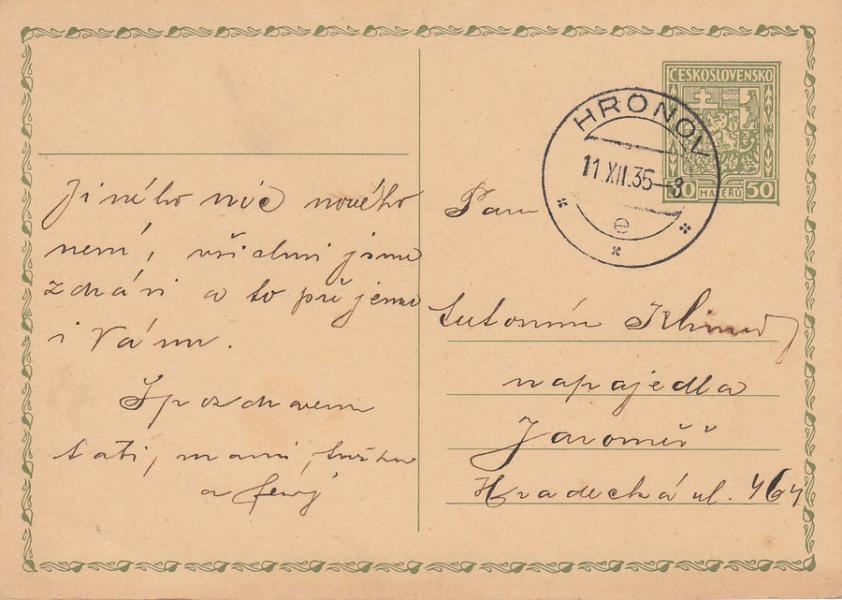 Jiného nic nového
není, všichni jsme
zdrávi a to přejeme
i Vám.
S pozdravem
tati, mami,
a
ČESKOSLOVENSKO
50 HALÉŘŮ 50
HRONOV
11.XII.35-8
e
Pan
Antonín
napajedla
Jaroměř
Hradecká ul. 464